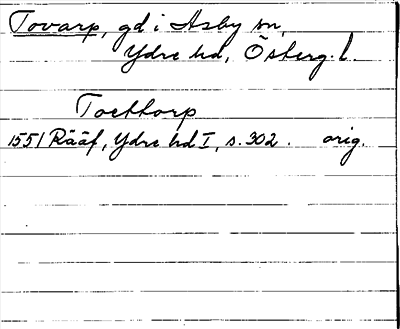 Tovarp, gd i Asby sn,
Ydre hd, Östergl.
Toettorp
1551 Rääf, Ydre hd I, s. 302. orig.